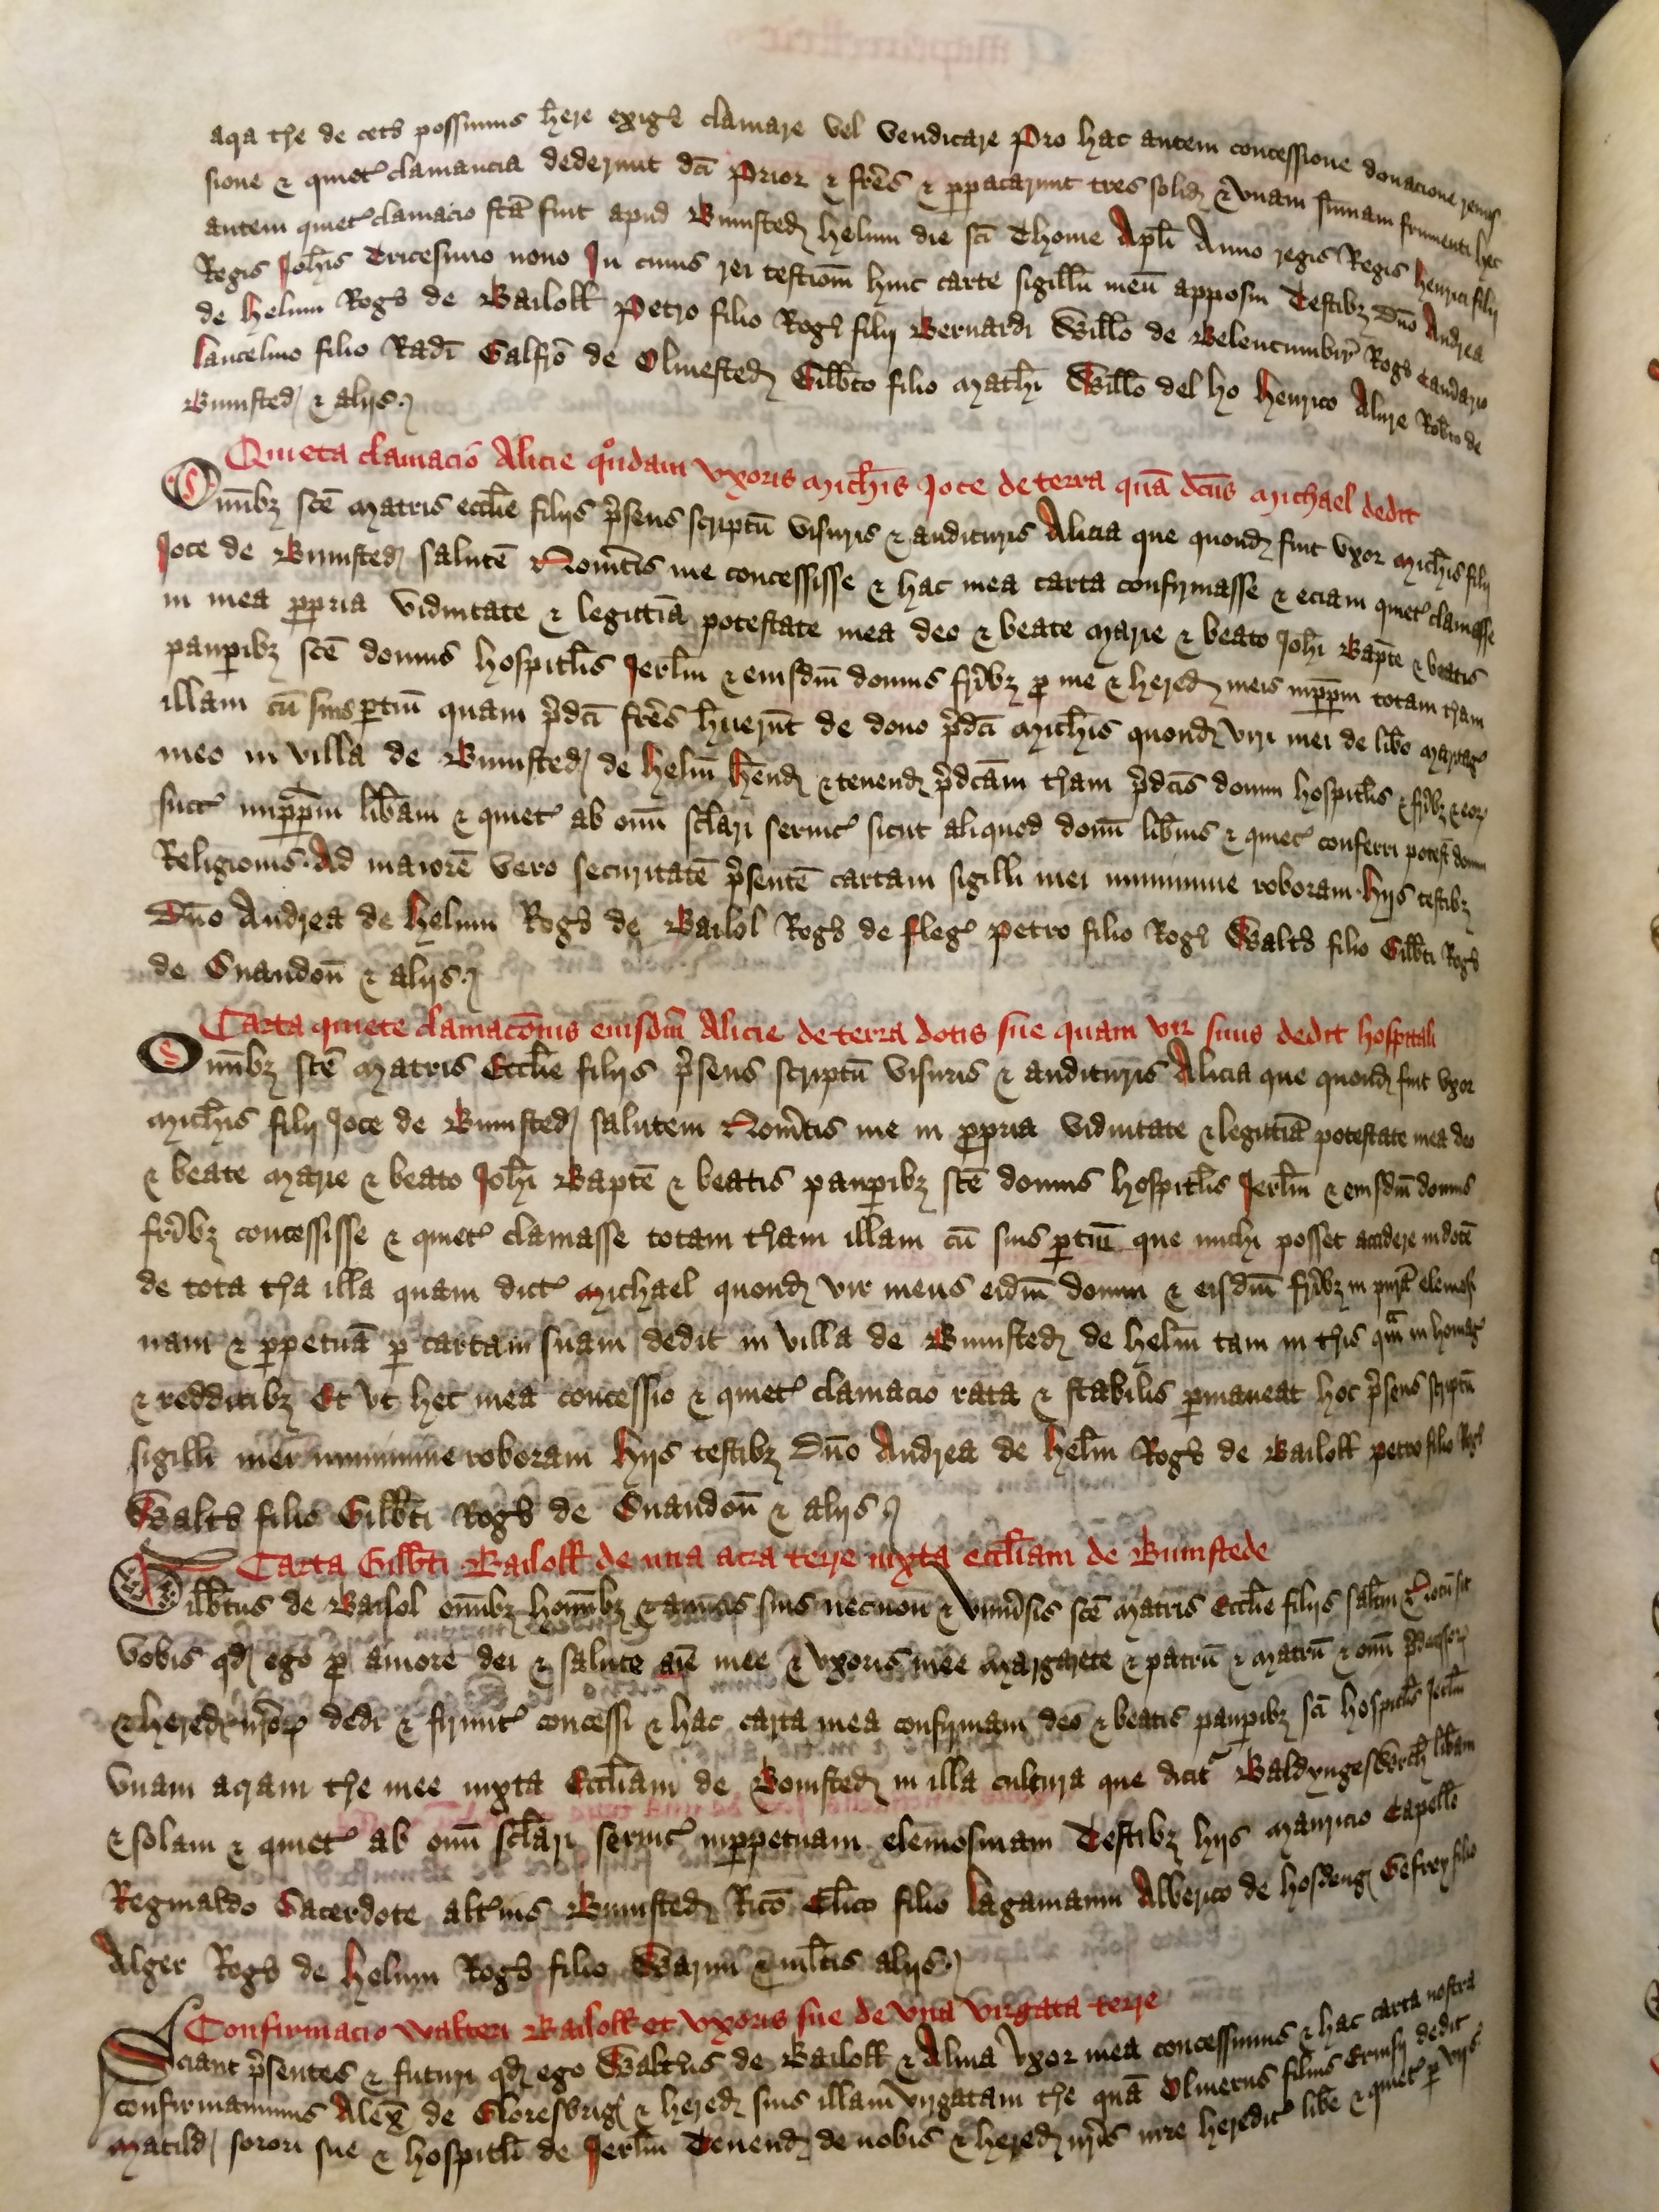 aqa t̃re de cet̃o possimus h̃ere exig̃e clamare vel vendicare Pro hac autem concessione donacione remis
sione & quiet̃ clamancia dederunt dc̃i Prior & fr̃es & p̱pacarunt tres solid̃ & Vnam sum̃am frumenti hec
autem quiet̃ clamacio fc̃a fuit apud Bumsted̃ helum die sc̃i Thome Apl̃i Anno regis Regis henrici filij
Regis Joh̃is Tricesimo nono In cuius rei testiom̃ huic carte sigillũ meũ apposui Testibꝫ Dño Andrea
de helum Rog̃o de Bailoll Petro filio Rog̃i filij Bernardi Will̃o de Belencumbir̃ Rog̃o
lancelino filio Rad̃i Galfr̃o de Olmested̃ Gilb̃to filio Math̃i Will̃o del ho henrico Rob̃to de
Bumsted̃ & alijs
Quieta clamacio Alicie qͦndam vxoris Mich̃is Joce de terra quã dc̃us Michael dedit
Om̃ibꝫ sc̃e Matris eccl̃ie filijs p̃sens scriptũ visuris & audituris Alicia que quond̃ fuit vxor Mich̃is filij
Joce de Bumsted̃ salutẽ Nou̾itis me concessisse & hac mea carta confirmasse & eciam quiet̃ clamasse
in mea p̱pria viduitate & legittiã potestate mea deo & beate Marie & beato Joh̃i Bapt̃e & beatis
paup̱ibꝫ sc̃e domus hospital̃is Jerl̃m & eiusdm̃ domus fr̃ibꝫ p̱ me & hered̃ meis inp̱p̃m totam t̃ram
illam cũ suis p̱tiũ quam p̃dc̃i fr̃es h̃uerũt de dono p̃dc̃i Mich̃is quond̃ viri mei de lib̃o maritag̃
meo in villa de Bumsted̃ de helm̃ h̃end̃ & tenend̃ p̃dc̃am t̃ram p̃dc̃is domui hospitl̃is & fr̃ibꝫ & eoꝝ
succ̃ inp̱p̃m lib̃am & quiet̃ ab om̃i sc̃lari seruic̃ sicut aliquod donũ lib̃ius & quiet̃ conferri potest domui
Religionis. Ad maiorẽ vero securitatẽ p̃sentẽ cartam sigilli mei munimine roboraui. hijs testibꝫ
Dño Andrea de helum Rog̃o de Bailol Rog̃o de fleg̃ Petro filio Rog̃i Walt̃o filio Gilb̃ti Rog̃o
de Suandoñ & alijs
Carta quiete clamacõnis eiusdm̃ Alicie de terra dotis sue quam vir suus dedit hospitali
Om̃ibꝫ sc̃e Matris Eccl̃ie filijs p̃sens scriptũ visuris & audituris Alicia que quond̃ fuit vxor
Mich̃is filij Joce de Bumsted̃ salutem Nou̾itis me in p̱pria viduitate & legittiã potestate mea deo
& beate Marie & beato Joh̃i Bapt̃e & beatis paup̱ibꝫ sc̃e domus hospitl̃is Jerl̃m & eiusdm̃ domus
fr̃ibꝫ concessisse & quiet̃ clamasse totam t̃ram illam cũ suis p̱tiũ que michi posset accidere in dotẽ
de tota t̃ra illa quam dict̃ Michael quond̃ vir meus eidm̃ domui & eisdm̃ fr̃ibꝫ in purã elemosi
nam & p̱petuã p̱ cartam suam dedit in villa de Bumsted̃ de helm̃ tam in t̃ris qm̃ in homag̃
& redditibꝫ Et vt hec mea concessio & quiet̃ clamacio rata & stabilis p̱maneat hoc p̃sens scriptũ
sigilli mei munimine roboraui hijs testibꝫ Dño Andrea de helm̃ Rog̃o de Bailoll Petro filio Rog̃i
Walt̃o filio Gilb̃ti Rog̃o de Suandoñ & alijs
Carta Gilb̃ti Bailoll de una acra terre iuxta eccl̃iam de Bumstede
Gilb̃tus de Bailol om̃ibꝫ hoĩibꝫ & amicis suis necnon & vniu̾sis sc̃e Matris Eccl̃ie filijs salt̃m Notũ sit
vobis qd̃ ego p̱ amore dei & salute aĩe mee & vxoris mee Margarete & patrũ & matrũ & om̃i p̃decessoꝝ
& hered̃ nr̃oꝝ dedi & firmit̃ concessi & hac carta mea confirmaui deo & beatis paup̱ibꝫ sc̃i hospitl̃is Jerl̃m
vnam acram t̃re mee iuxta Eccl̃iam de Bomsted̃ in illa cultura que dicit̃ Baldyngesb̃rch̃ lib̃am
& solam & quiet̃ ab om̃i sc̃lari seruic̃ inp̱petuam elemosinam Testibꝫ hijs Mauricio Capell̃o
Reginaldo Sacerdote alt̃ius Bumsted̃ Ric̃o Cl̃ico filio lagamanni Alberico de hosdeng̃ Gefrey filio
Alger Rog̃o de helum Rog̃o filio Warini & ml̃tis alijs
Confirmacio Walteri Bailoll et vxoris sue de vna virgata terre
Sciant p̃sentes & futuri qd̃ ego Walt̃us de Bailoll & Alina vxor mea concessimus & hac carta nostra
confirmauimus Alex̃ de Gloresbrig̃ & hered̃ suis illam virgatam t̃re quã Oliuerus filius Ernisij dedit
Matild̃ sorori sue & hospitl̃i de Jerl̃m Tenend̃ de nobis & hered̃ nr̃is iure heredit̃ lib̃e & quiet̃ p̱ vijs